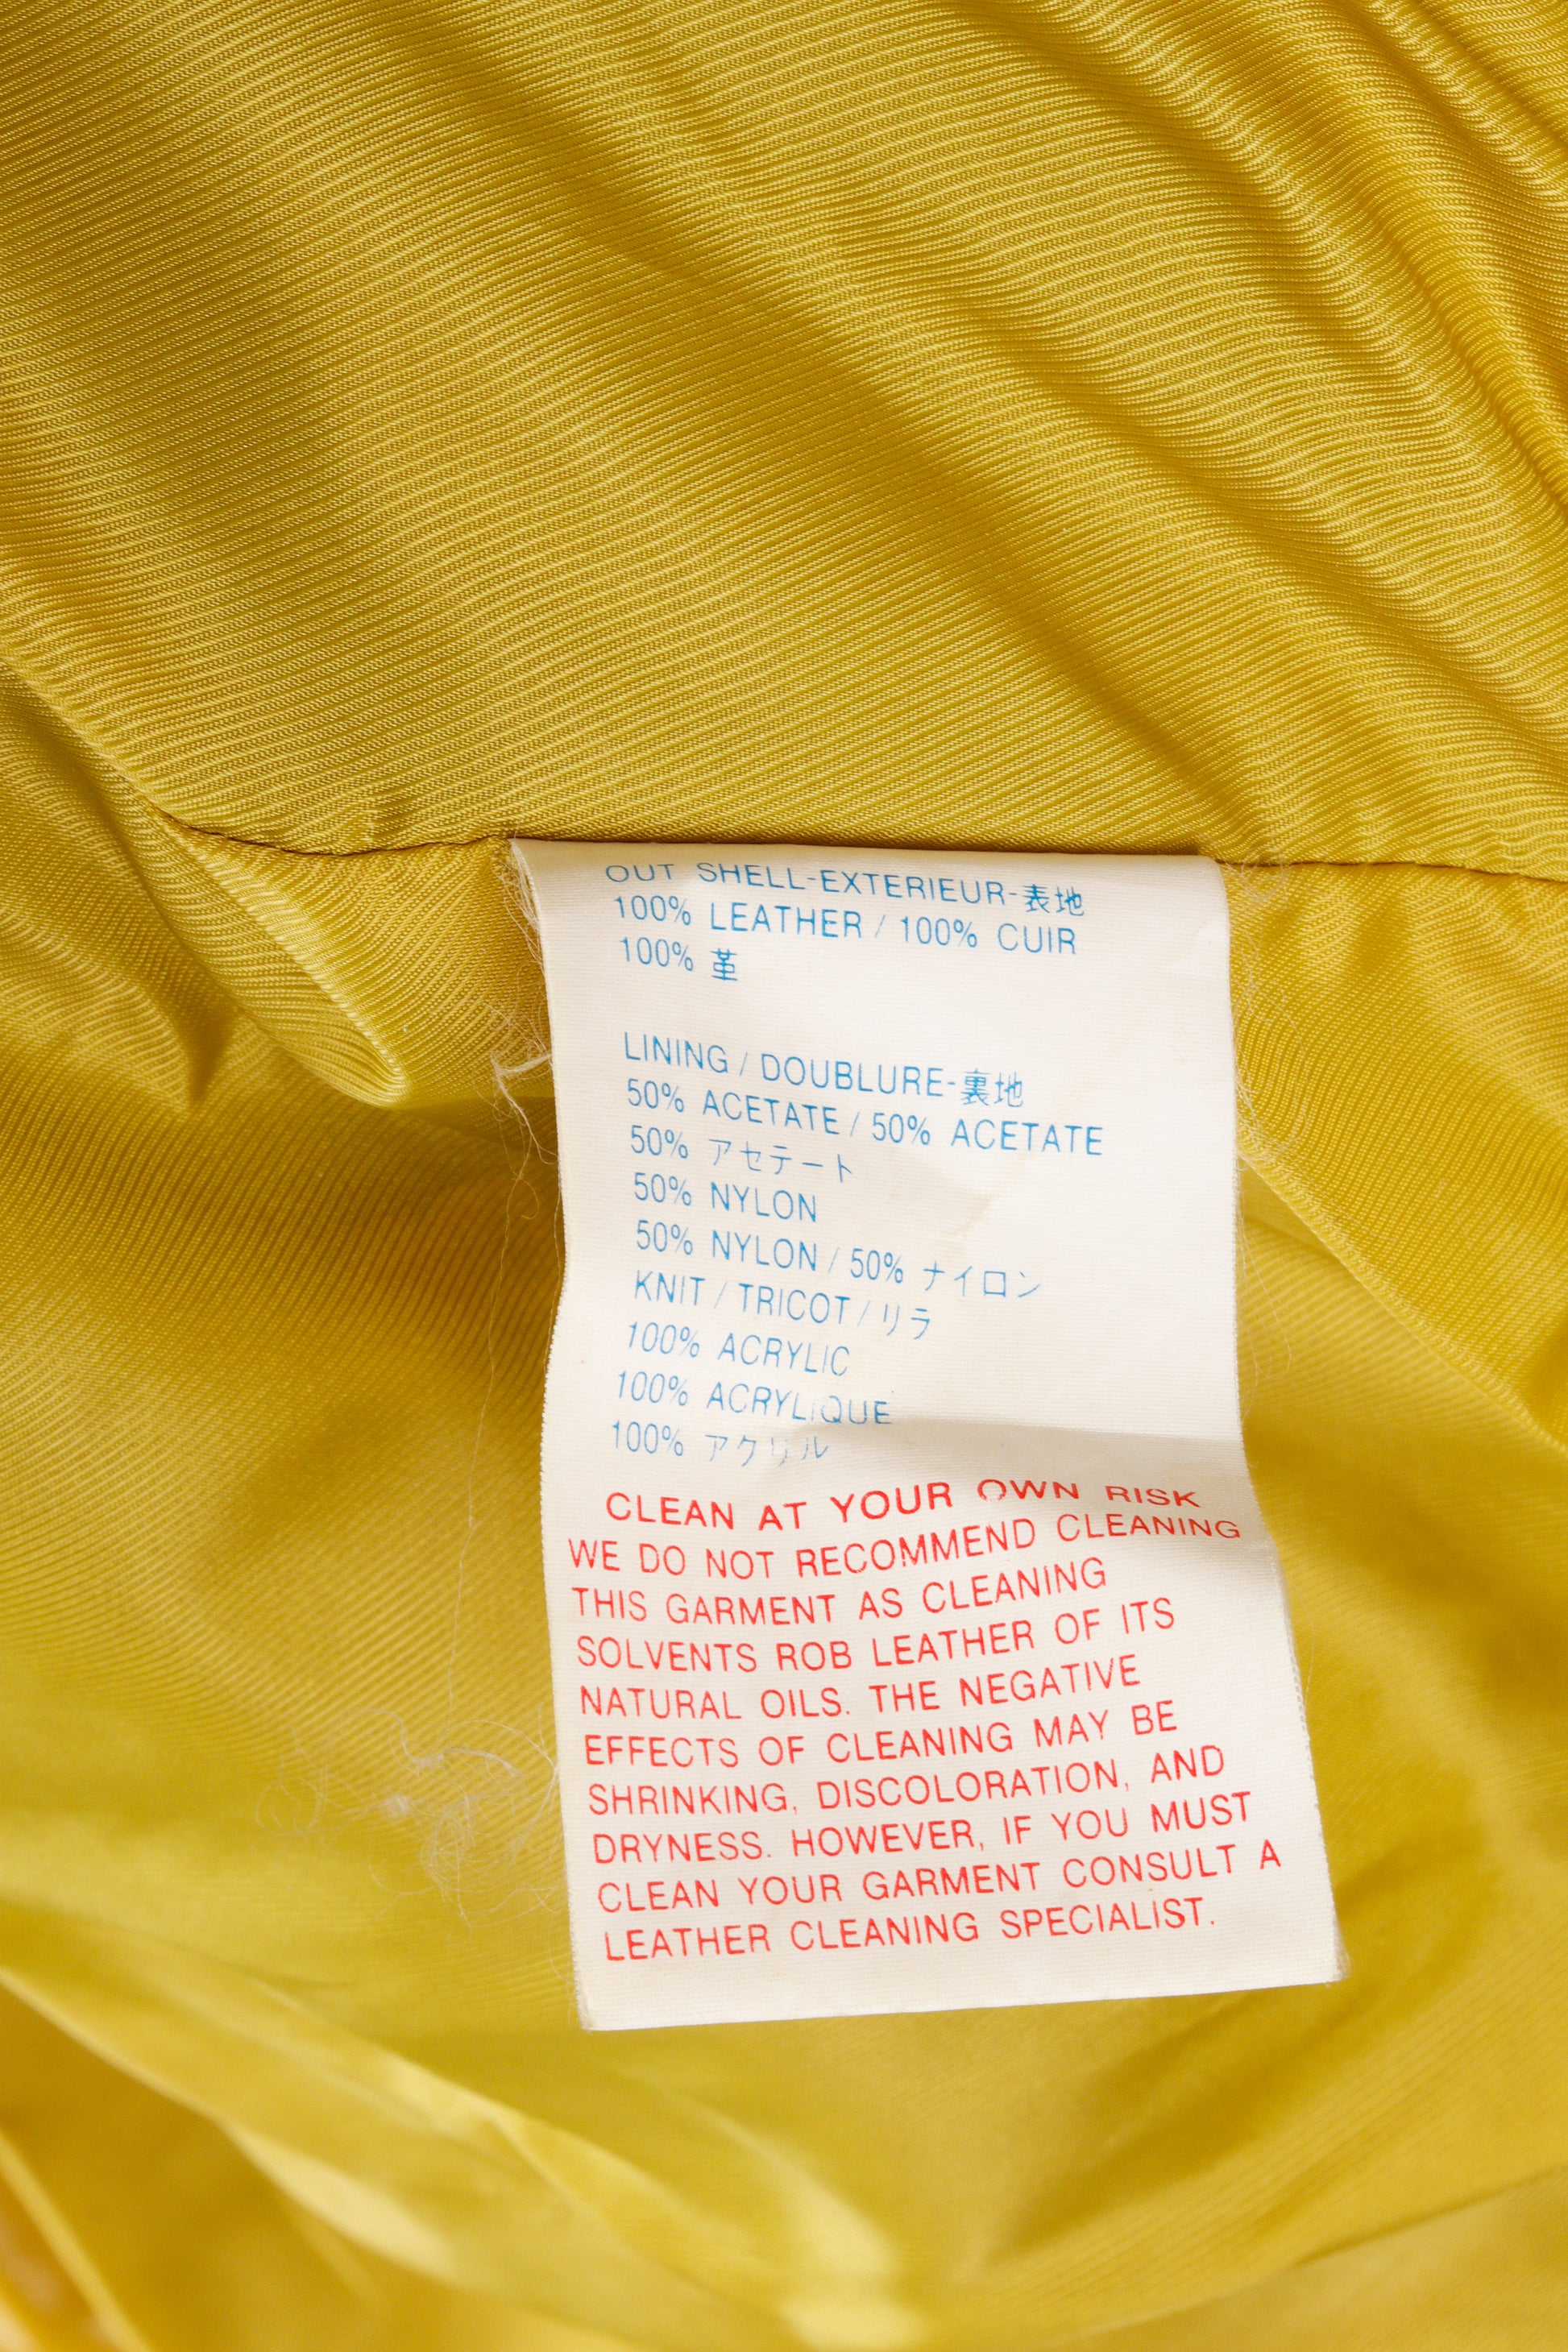 OUT SHELL-EXTERIEUR-表地
100% LEATHER / 100% CUIR
100% 革
LINING / DOUBLURE-裏地
50% ACETATE / 50% ACETATE
50% アセテート
50% NYLON
50% NYLON / 50% ナイロン
KNIT / TRICOT / リラ
100% ACRYLIC
100% ACRYLIQUE
100% アクリル
CLEAN AT YOUR OWN RISK
WE DO NOT RECOMMEND CLEANING
THIS GARMENT AS CLEANING
SOLVENTS ROB LEATHER OF ITS
NATURAL OILS. THE NEGATIVE
EFFECTS OF CLEANING MAY BE
SHRINKING, DISCOLORATION, AND
DRYNESS. HOWEVER, IF YOU MUST
CLEAN YOUR GARMENT CONSULT A
LEATHER CLEANING SPECIALIST.